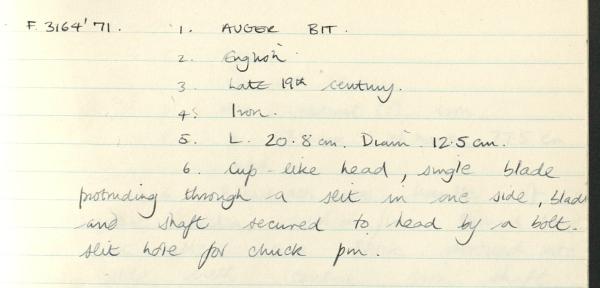 F. 3164'71. 1. AUGER BIT.
2. English.
3. Late 19th century.
4. Iron.
5. L. 20.8 cm. Diam. 12.5 cm.
6. Cup-like head, single blade
protruding through a slit in one side, blade
and shaft secured to head by a bolt.
Slit hole for chuck pin.